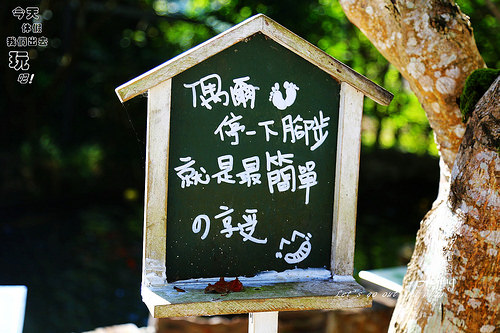 今天
休假
我們出去
玩
吧!
偶爾
停一下腳步
就是最簡單
の享受
Let's go out